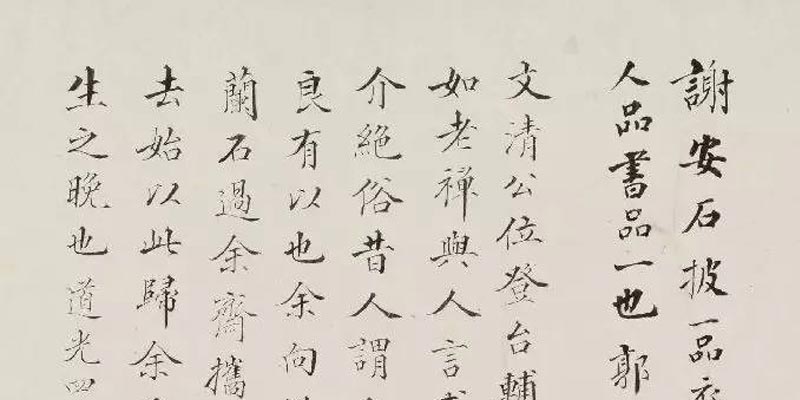 謝安石披一品衣
人品書品一也郭
文清公位登台輔
如老禪與人言
介絕俗昔人謂
良有以也余向
蘭石過余齋攜
去始以此歸余
生之晚也道光四